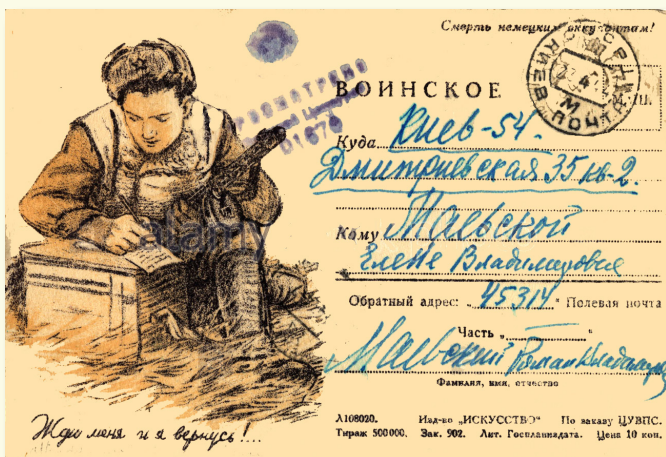 Смерть немецким оккупантам!
ПРОСМОТРЕНО
01676
ВОИНСКОЕ
КИЕВ
ПОЧТА
Куда Киев-54.
Дмитриевская 35 кв-2.
Кому Маевской
Елене Владимировне
Обратный адрес: „45314" Полевая почта
Часть „ "
Маевский Роман Владимиров
Фамилия, имя, отчество
Жди меня и я вернусь!...
Л108020. Изд-во „ИСКУССТВО" По заказу ЦУВПС.
Тираж 500000. Зак. 902. Лит. Госпланиздата. Цена 10 коп.
alamy